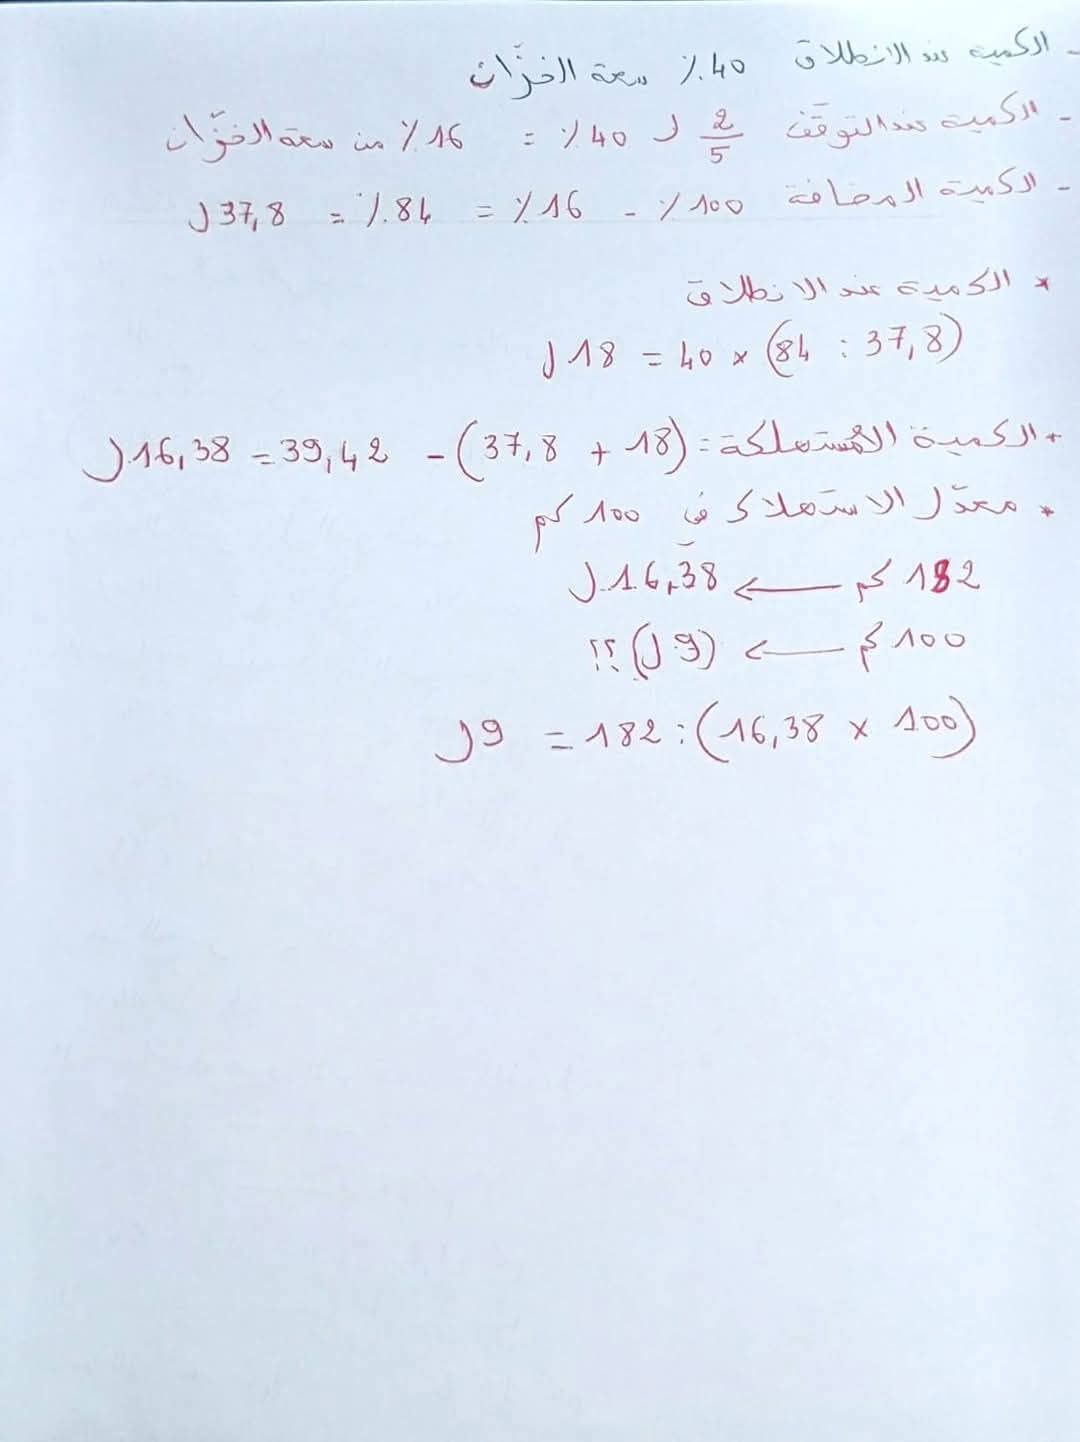 - الكمية عند الانطلاق 40٪ سعة الخزّان
- الكمية عند التوقّف 2/5 لـ 40٪ = 16٪ من سعة الخزّان
- الكمية المضافة 100٪ - 16٪ = 84٪ = 37,8 ل
* الكمية عند الانطلاق
(37,8 : 84) × 40 = 18 ل
+ الكمية المستهلكة = (18 + 37,8) - 39,42 = 16,38 ل
* معدّل الاستهلاك في 100 كم
182 كم ← 16,38 ل
100 كم ← (9 ل) ؟؟
(100 × 16,38) : 182 = 9 ل